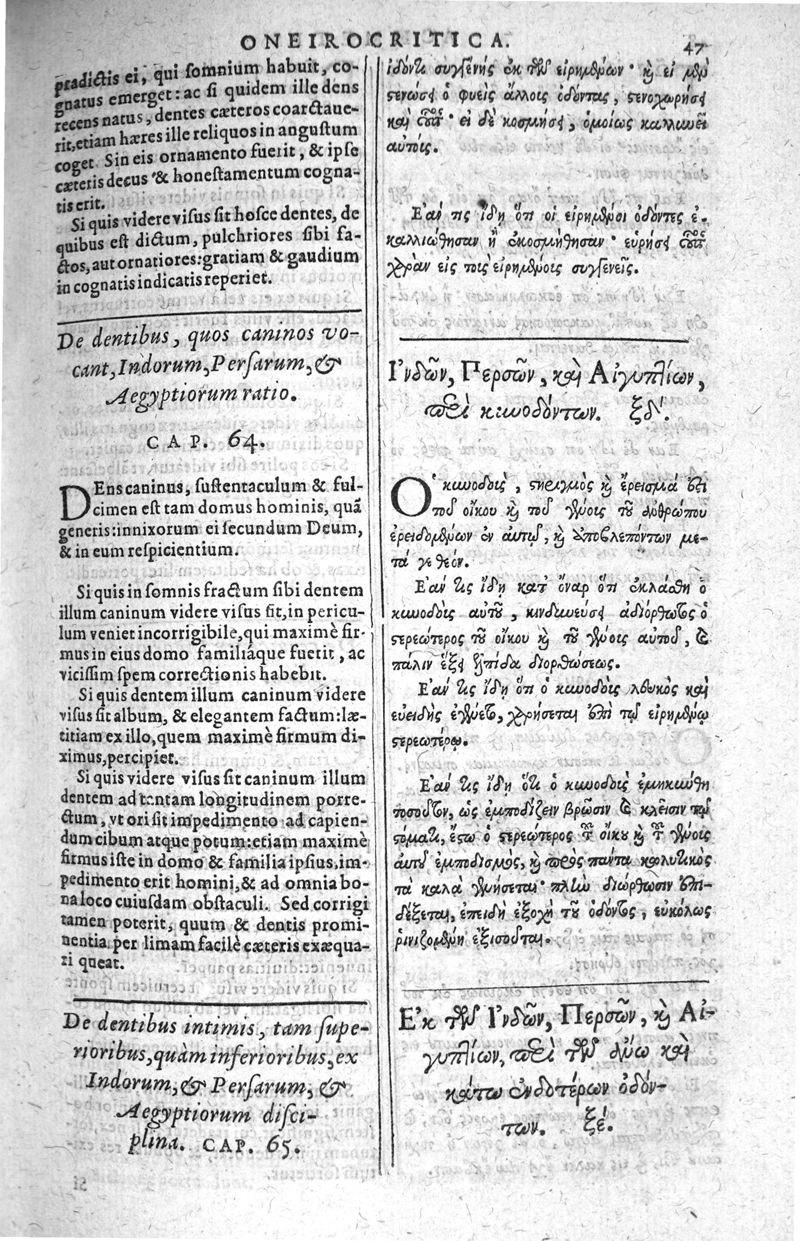 ONEIROCRITICA.
47
prædictis ei, qui somnium habuit, co-
gnatus emerget: ac si quidem ille dens
recens natus, dentes cæteros coarctaue-
rit, etiam hæres ille reliquos in angustum
coget. Sin eis ornamento fuerit, & ipse
cæteris decus & honestamentum cogna-
tis erit.
Si quis videre visus sit hosce dentes, de
quibus est dictum, pulchriores sibi fa-
ctos, aut ornatiores: gratiam & gaudium
in cognatis indicatis reperiet.
De dentibus, quos caninos vo-
cant, Indorum, Persarum, &
Aegyptiorum ratio.
CAP. 64.
DEns caninus, sustentaculum & ful-
cimen est tam domus hominis, quã
generis: innixorum ei secundum Deum,
& in eum respicientium.
Si quis in somnis fractum sibi dentem
illum caninum videre visus sit, in pericu-
lum veniet incorrigibile, qui maximè fir-
mus in eius domo familiáque fuerit, ac
vicissim spem correctionis habebit.
Si quis dentem illum caninum videre
visus sit album, & elegantem factum: læ-
titiam ex illo, quem maximè firmum di-
ximus, percipiet.
Si quis videre visus sit caninum illum
dentem ad tantam longitudinem porre-
ctum, vt ori sit impedimento ad capien-
dum cibum atque potum: etiam maximè
firmus iste in domo & familia ipsius, im-
pedimento erit homini, & ad omnia bo-
na loco cuiusdam obstaculi. Sed corrigi
tamen poterit, quum & dentis promi-
nentia per limam facilè cæteris exæqua-
ri queat.
De dentibus intimis, tam supe-
rioribus, quàm inferioribus, ex
Indorum, & Persarum, &
Aegyptiorum disci-
plina. CAP. 65.
ἰδόντι συγγενὴς ἐκ τῶν εἰρημένων· καὶ εἰ μὲν
στενώσῃ ὁ φυεὶς ἄλλοις ὀδόντας, στενοχωρήσῃ
καὶ οὗτος· εἰ δὲ κοσμήσῃ, ὁμοίως καλλυνεῖ
αὐτοίς.
Εαν τις ἴδῃ ὅτι οἱ εἰρημένοι ὀδόντες ἐ-
καλλιώθησαν ἢ ἐκοσμήθησαν· εὑρήσῃ οὗτος
χαρὰν εἰς τοὺς εἰρημένοις συγγενεῖς.
Ινδῶν, Περσῶν, καὶ Αἰγυπτίων,
περὶ κυνοδόντων. ξδʹ.
Ο κυνόδους, στηριγμὸς καὶ ἔρεισμά ἐστι
τοῦ οἴκου καὶ τοῦ γένοις τοῦ ἀνθρώπου
ἐρειδομένων ἐν αὐτῷ, καὶ ἀποβλεπόντων με-
τά γε θεόν.
Εαν τις ἴδῃ κατ' ὄναρ ὅτι ἐκλάσθη ὁ
κυνόδους αὐτοῦ, κινδυνεύσῃ ἀδιόρθωτος ὁ
στερεώτερος τοῦ οἴκου καὶ τοῦ γένοις αὐτοῦ, καὶ
πάλιν ἕξει ἐλπίδα διορθώσεως.
Εαν τις ἴδῃ ὅτι ὁ κυνόδους λευκὸς καὶ
εὐειδὴς ἐγένετο, χαρήσεται ἐπὶ τῷ εἰρημένῳ
στερεωτέρῳ.
Εαν τις ἴδῃ ὅτι ὁ κυνόδους ἐμηκύνθη
τοσοῦτον, ὡς ἐμποδίζειν βρῶσιν καὶ κλεῖσιν τῷ
στόματι, ἔσται ὁ στερεώτερος τοῦ οἴκου καὶ τοῦ γένοις
αὐτοῦ ἐμποδισμὸς, καὶ πρὸς πάντα κωλυτικὸς
τὰ καλὰ γενήσεται· πλὴν διόρθωσιν ἐπι-
δέξεται, ἐπειδὴ ἐξοχὴ τοῦ ὀδόντος, εὐκόλως
ῥινιζομένη ἐξισοῦται.
Εκ τῶν Ινδῶν, Περσῶν, καὶ Αἰ-
γυπτίων, περὶ τῶν ἄνω καὶ
κάτω ἐνδοτέρων ὀδόν-
των. ξέ.